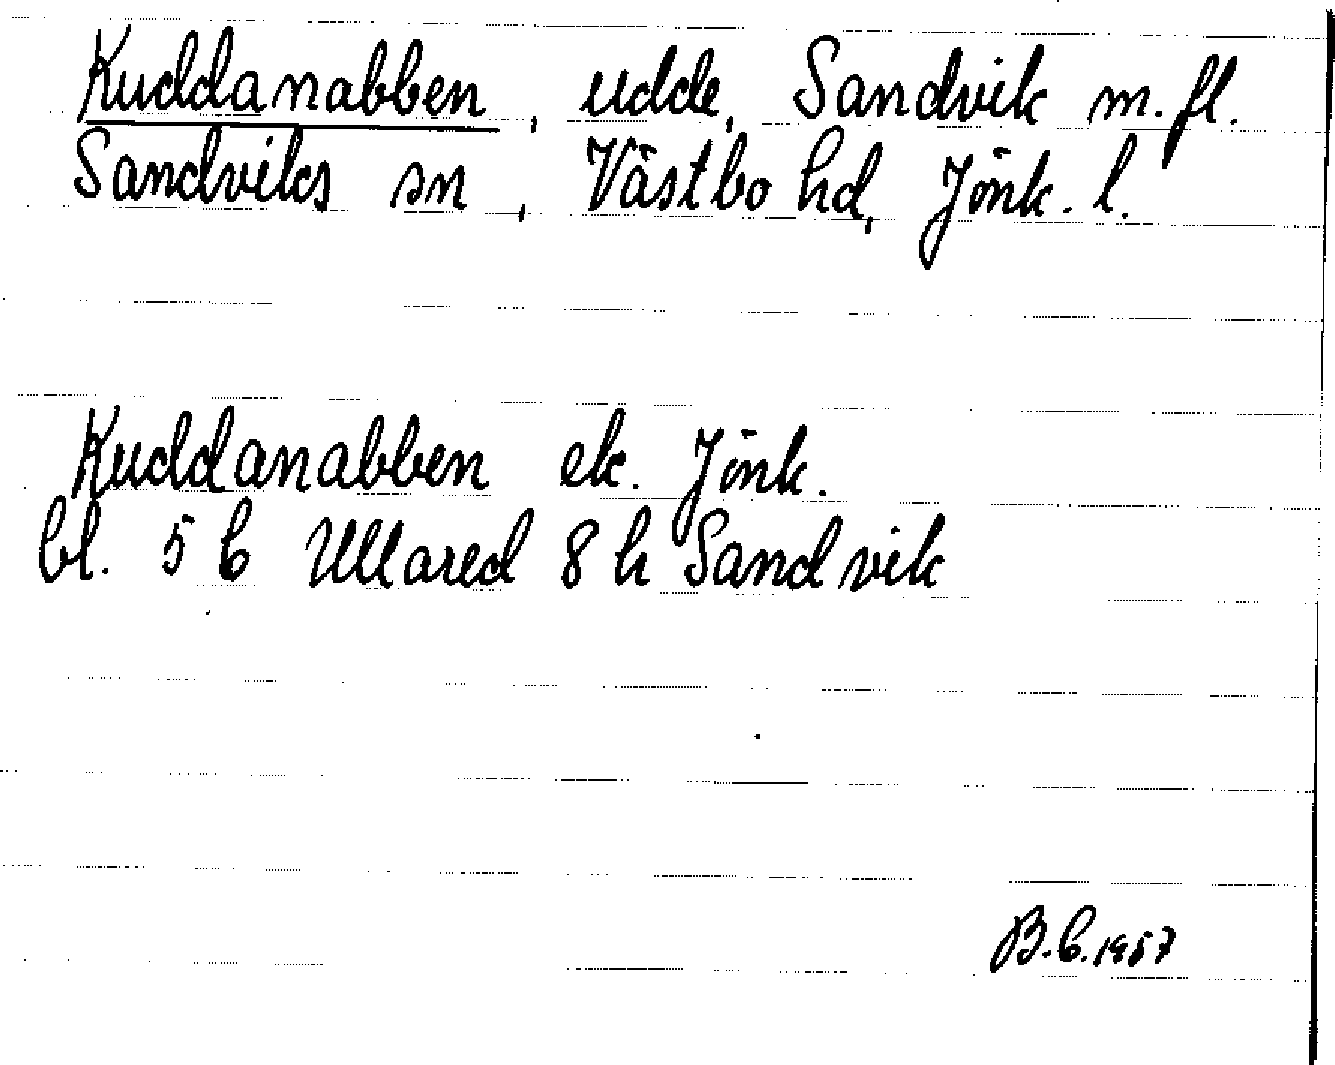 Kuddanabben, udde, Sandvik m.fl.
Sandviks sn, Västbo hd, Jönk. l.
Kuddanabben ek. Jönk.
bl. 5 6 Ullared 8 h Sandvik
B.G. 1957